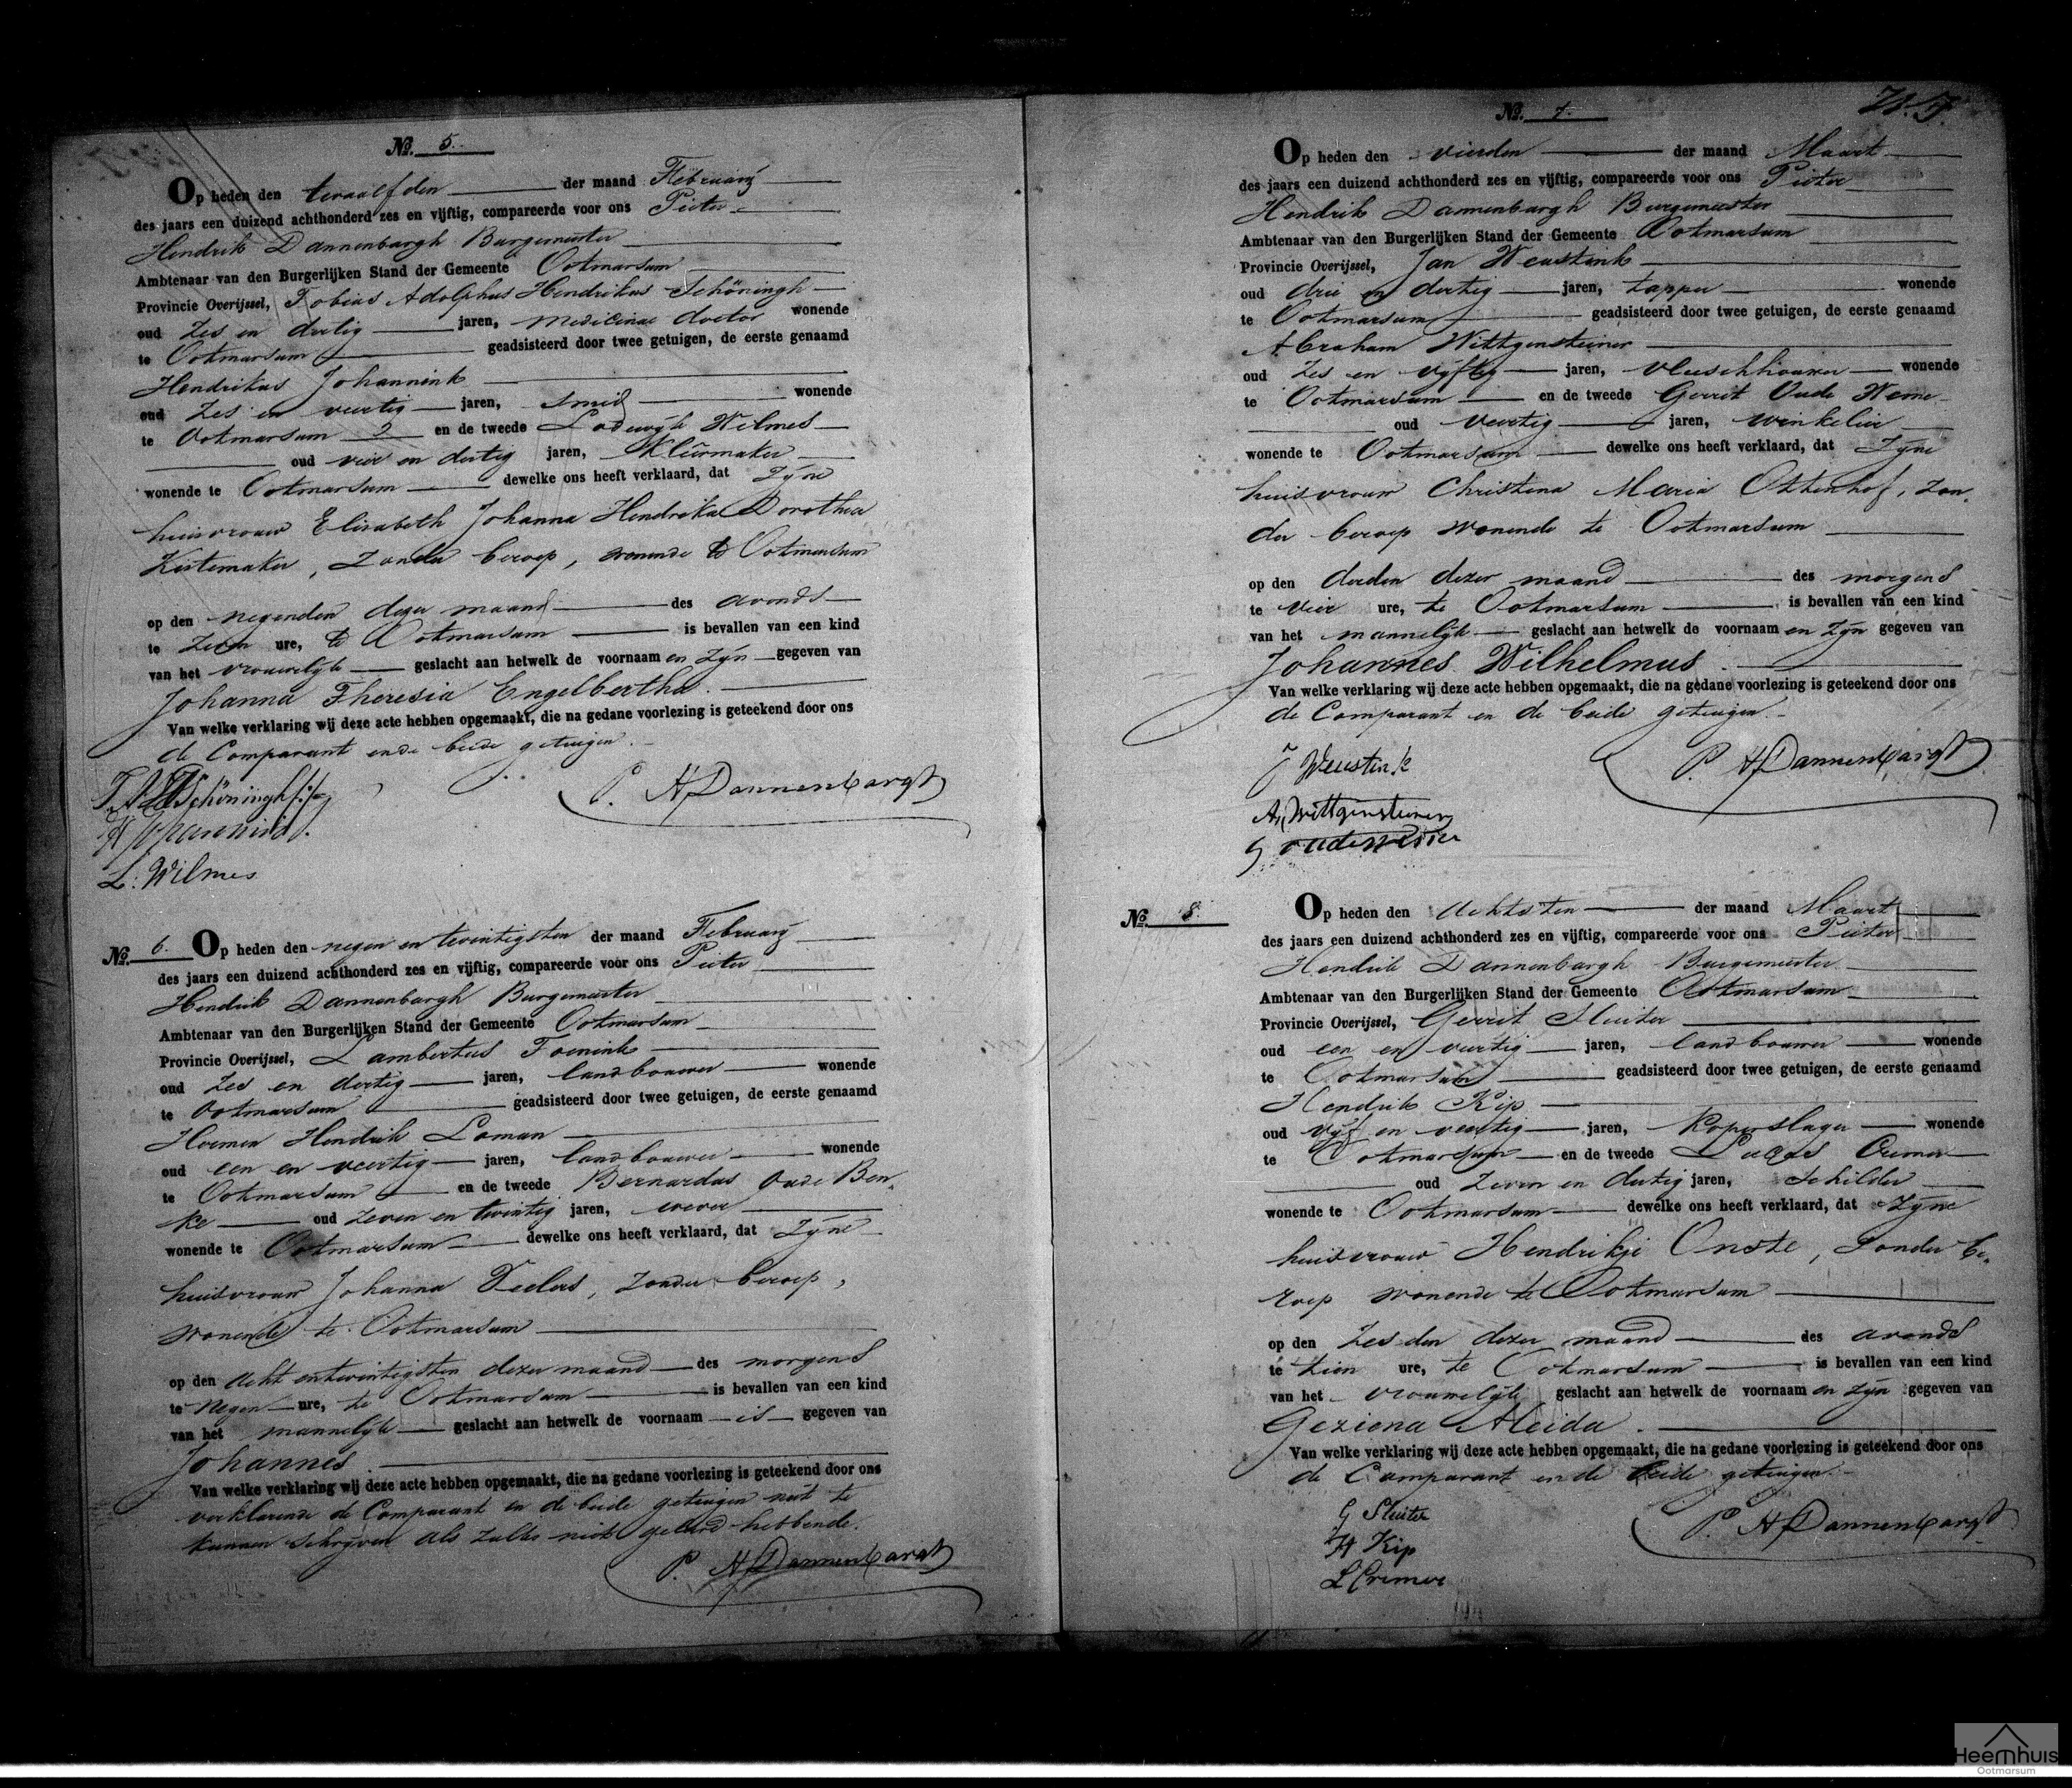 No. 5.
Op heden den twaalfden der maand February
des jaars een duizend achthonderd zes en vijftig, compareerde voor ons Pieter
Hendrik Dannenbargh Burgemeester
Ambtenaar van den Burgerlijken Stand der Gemeente Ootmarsum
Provincie Overijssel, Tobias Adolphus Hendrikus Schöningh
oud zes en dertig jaren, medicinae doctor wonende
te Ootmarsum geadsisteerd door twee getuigen, de eerste genaamd
Hendrikus Johannink
oud zes en veertig jaren, smid wonende
te Ootmarsum en de tweede Lodewyk Wilmes
oud vier en dertig jaren, Kleermaker
wonende te Ootmarsum dewelke ons heeft verklaard, dat zyne
huisvrouw Elisabeth Johanna Hendrika Dorothea
Kistemaker, zonder beroep, wonende te Ootmarsum
op den negenden dezer maand des avonds
te zeven ure, te Ootmarsum is bevallen van een kind
van het vrouwelyk geslacht aan hetwelk de voornaam en zyn gegeven van
Johanna Theresia Engelbertha.
Van welke verklaring wij deze acte hebben opgemaakt, die na gedane voorlezing is geteekend door ons
de Comparant en de beide getuigen.
Schöningh
P. H Dannenbargh
L. Wilmes
No. 6. Op heden den negen en twintigsten der maand February
des jaars een duizend achthonderd zes en vijftig, compareerde voor ons Pieter
Hendrik Dannenbargh Burgemeester
Ambtenaar van den Burgerlijken Stand der Gemeente Ootmarsum
Provincie Overijssel, Lambertus Toenink
oud zes en dertig jaren, landbouwer wonende
te Ootmarsum geadsisteerd door twee getuigen, de eerste genaamd
Hermen Hendrik Loman
oud een en veertig jaren, landbouwer wonende
te Ootmarsum en de tweede Bernardus Oude Ben-
ke oud zeven en twintig jaren, wever
wonende te Ootmarsum dewelke ons heeft verklaard, dat zyne
huisvrouw Johanna zonder beroep,
wonende te Ootmarsum
op den acht en twintigsten dezer maand des morgens
te negen ure, te Ootmarsum is bevallen van een kind
van het mannelyk geslacht aan hetwelk de voornaam is gegeven van
Johannes.
Van welke verklaring wij deze acte hebben opgemaakt, die na gedane voorlezing is geteekend door ons
verklarende de Comparant en de beide getuigen niet te
kunnen schryven als zulks niet geleerd hebbende.
P. H Dannenbargh
No. 7.
Op heden den vierden der maand Maart
des jaars een duizend achthonderd zes en vijftig, compareerde voor ons Pieter
Hendrik Dannenbargh Burgemeester
Ambtenaar van den Burgerlijken Stand der Gemeente Ootmarsum
Provincie Overijssel, Jan Weustink
oud drie en dertig jaren, tapper wonende
te Ootmarsum geadsisteerd door twee getuigen, de eerste genaamd
Abraham Wittgensteiner
oud zes en vyftig jaren, vleeschhouwer wonende
te Ootmarsum en de tweede Gerrit Oude Weme
oud veertig jaren, winkelier
wonende te Ootmarsum dewelke ons heeft verklaard, dat zyne
huisvrouw Christina Maria Ottenhof, zon-
der beroep wonende te Ootmarsum
op den derden dezer maand des morgens
te vier ure, te Ootmarsum is bevallen van een kind
van het mannelyk geslacht aan hetwelk de voornaam en zyn gegeven van
Johannes Wilhelmus.
Van welke verklaring wij deze acte hebben opgemaakt, die na gedane voorlezing is geteekend door ons
de Comparant en de beide getuigen.
J Weustink
P. H Dannenbargh
A. Wittgensteiner
No. 8. Op heden den achtsten der maand Maart
des jaars een duizend achthonderd zes en vijftig, compareerde voor ons Pieter
Hendrik Dannenbargh Burgemeester
Ambtenaar van den Burgerlijken Stand der Gemeente Ootmarsum
Provincie Overijssel, Gerrit Sluiter
oud een en veertig jaren, landbouwer wonende
te Ootmarsum geadsisteerd door twee getuigen, de eerste genaamd
Hendrik Kip
oud vyf en veertig jaren, koperslager wonende
te Ootmarsum en de tweede Lucas Cremer
oud zeven en dertig jaren, schilder
wonende te Ootmarsum dewelke ons heeft verklaard, dat zyne
huisvrouw Hendrikje Onste, zonder be-
roep wonende te Ootmarsum
op den zesden dezer maand des avonds
te tien ure, te Ootmarsum is bevallen van een kind
van het vrouwelyk geslacht aan hetwelk de voornaam en zyn gegeven van
Geziena Aleida.
Van welke verklaring wij deze acte hebben opgemaakt, die na gedane voorlezing is geteekend door ons
de Comparant en de beide getuigen.
G Sluiter
P. H Dannenbargh
H Kip
L Cremer
Heemhuis
Ootmarsum